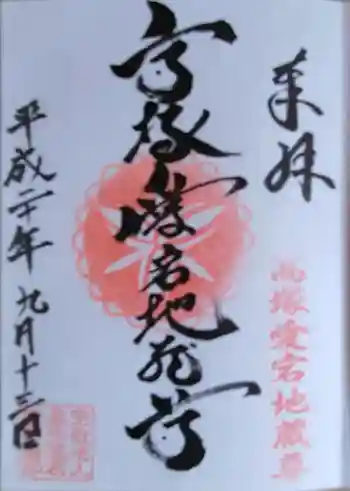 奉拝
高塚愛宕地蔵尊
高塚愛宕地蔵尊
平成二十年九月十三日